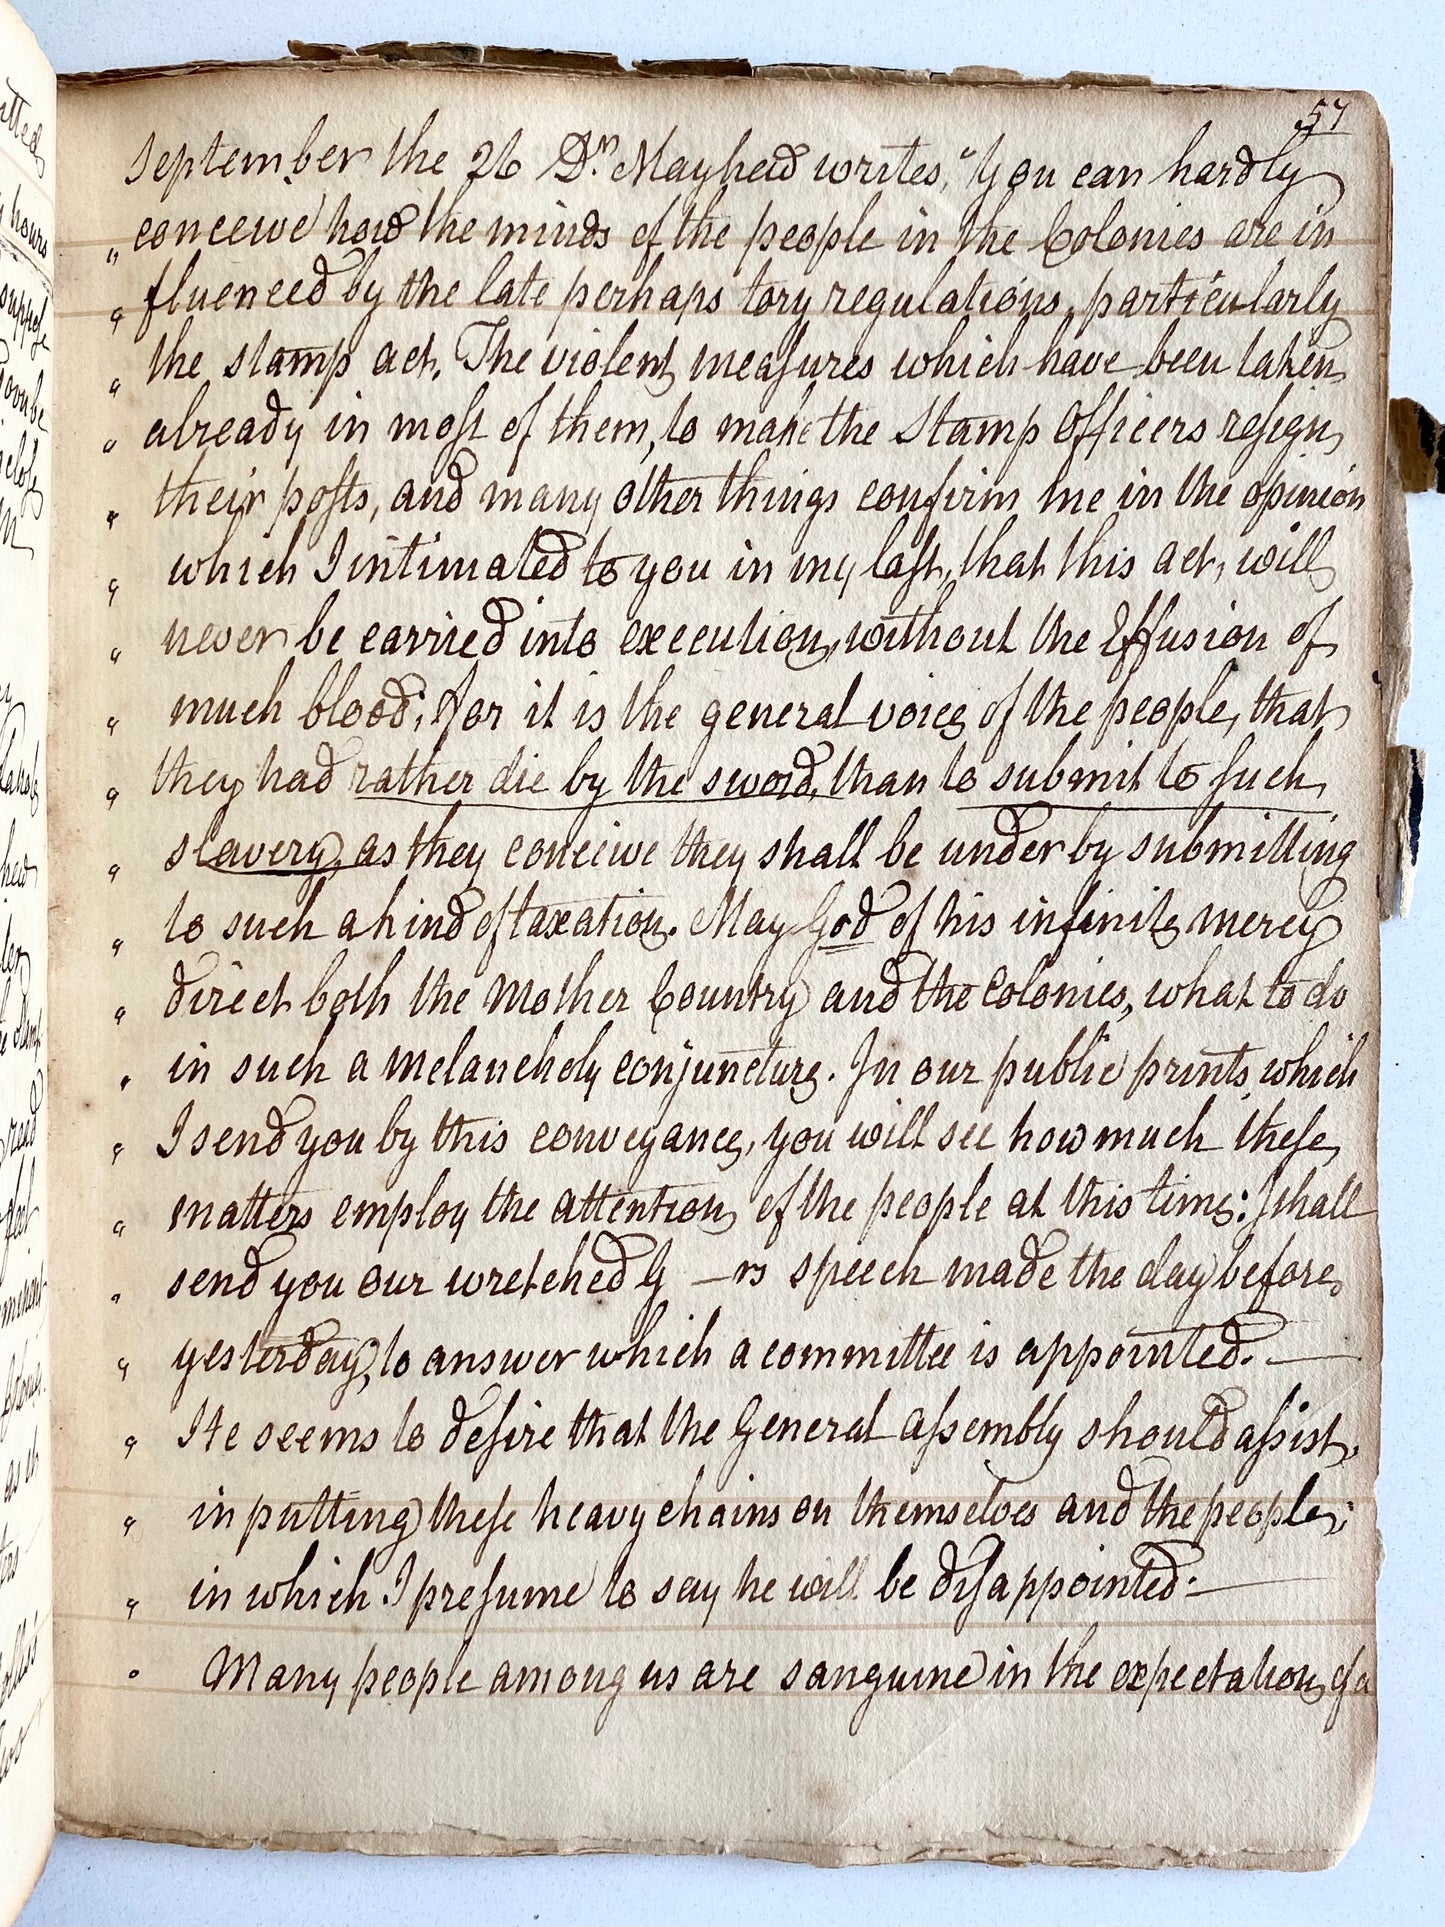 57
September the 26 Dr. Mayhew writes, "You can hardly
" conceive how the minds of the people in the Colonies are in
" fluenced by the late perhaps tory regulations, particularly
" the stamp act. The violent measures which have been taken
" already in most of them, to make the Stamp Officers resign
" their posts, and many other things confirm me in the opinion
" which I intimated to you in my last, that this act, will
" never be carried into execution, without the Effusion of
" much blood; for it is the general voice of the people, that
" they had rather die by the sword, than to submit to such
" slavery, as they conceive they shall be under by submitting
" to such a kind of taxation. May God of his infinite mercy
" direct both the Mother Country and the Colonies, what to do
" in such a melancholy conjuncture. In our public prints, which
" I send you by this conveyance, you will see how much these
" matters employ the attention of the people at this time: I shall
" send you our wretched G —rs speech made the day before
" yesterday, to answer which a committee is appointed. —
" He seems to desire that the General assembly should assist,
" in putting these heavy chains on themselves and the people;
" in which I presume to say he will be disappointed. —
" Many people among us are sanguine in the expectation of a